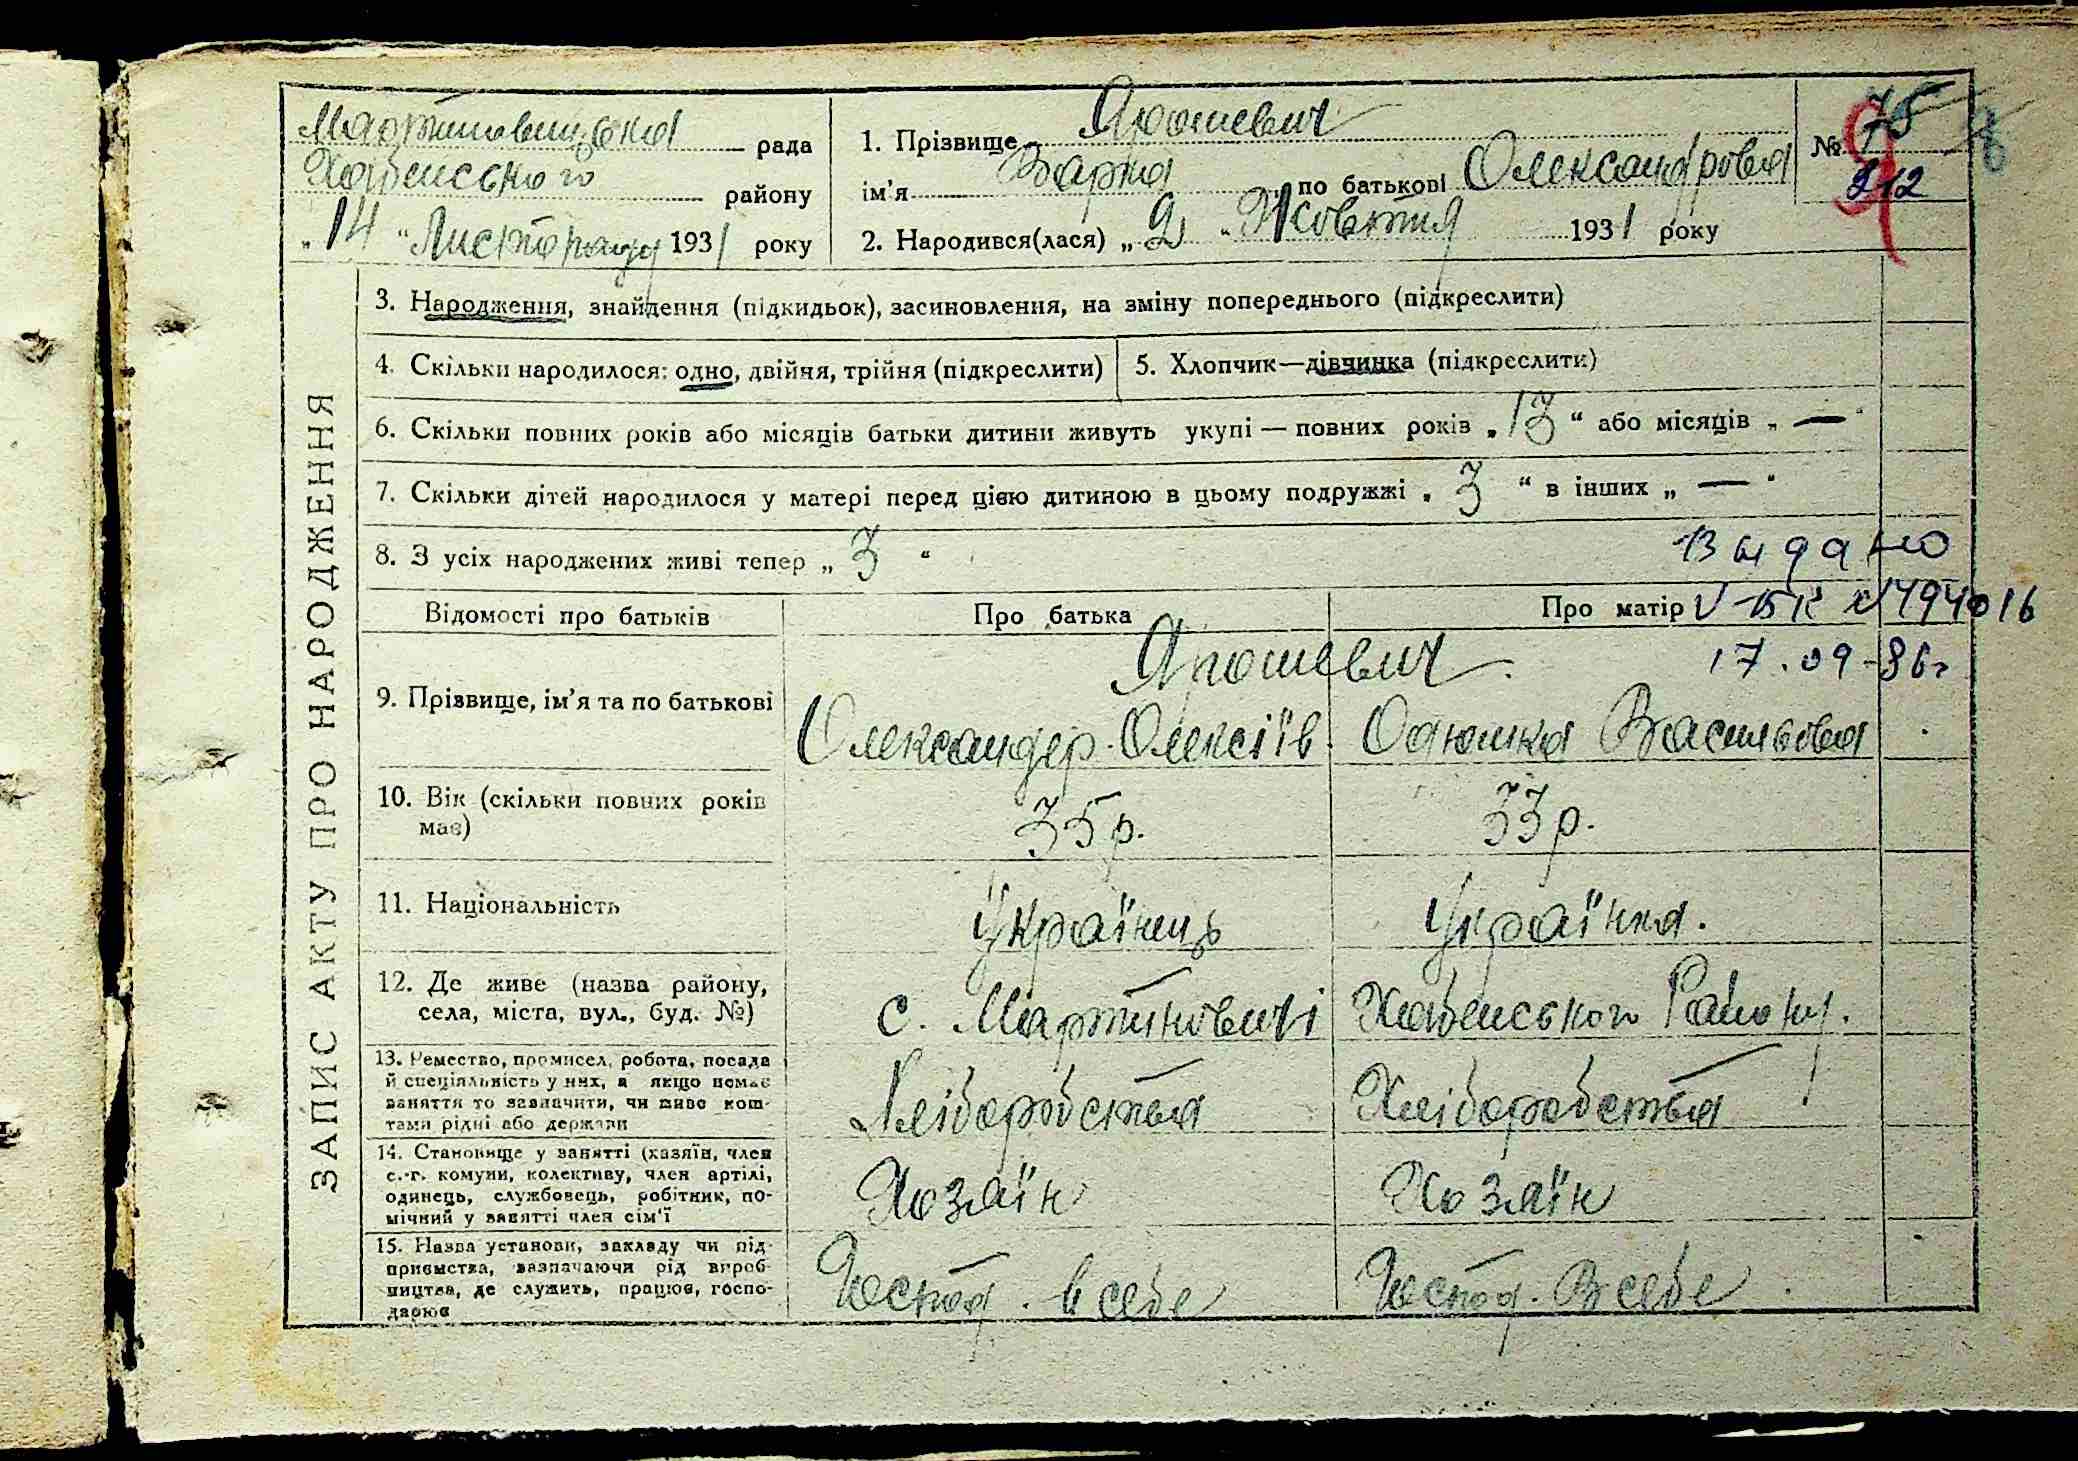 Мартиновицька рада
Хабенського району
„14“ Листопаду 1931 року
1. Прізвище Ярошевич
ім’я Варка по батькові Олександровна
2. Народився(лася) „2“ Жовтня 1931 року
№ 75
212
ЗАПИС АКТУ ПРО НАРОДЖЕННЯ
3. Народження, знайдення (підкидьок), засиновлення, на зміну попереднього (підкреслити)
4. Скільки народилося: одно, двійня, трійня (підкреслити)
5. Хлопчик—дівчинка (підкреслити)
6. Скільки повних років або місяців батьки дитини живуть укупі — повних років „13“ або місяців „—“
7. Скільки дітей народилося у матері перед цією дитиною в цьому подружжі „3“ в інших „—“
8. З усіх народжених живі тепер „3“
Выдано
V-БК №494016
17.09-86г
Відомості про батьків
Про батька
Про матір
9. Прізвище, ім’я та по батькові
Ярошевич
Олександер Олексіїв
Василовна
10. Вік (скільки повних років
має)
35р.
33р.
11. Національність
Українець
Українка.
12. Де живе (назва району,
села, міста, вул., буд. №)
с. Мартиновичі Хабенського Району.
13. Ремество, промисел, робота, посада
й спеціяльність у них, а якщо немає
заняття то зазначити, чи живе кош-
тами рідні або держави
Хліборобства
Хліборобства
14. Становище у занятті (хазяїн, член
с.-г. комуни, колективу, член артілі,
одинець, службовець, робітник, по-
мічний у занятті член сім’ї
Хозяїн
Хозяїн
15. Назва установи, закладу чи під-
приємства, зазначаючи рід вироб-
ництва, де служить, працює, госпо-
дарює
Господ. в себе
Господ. В себе